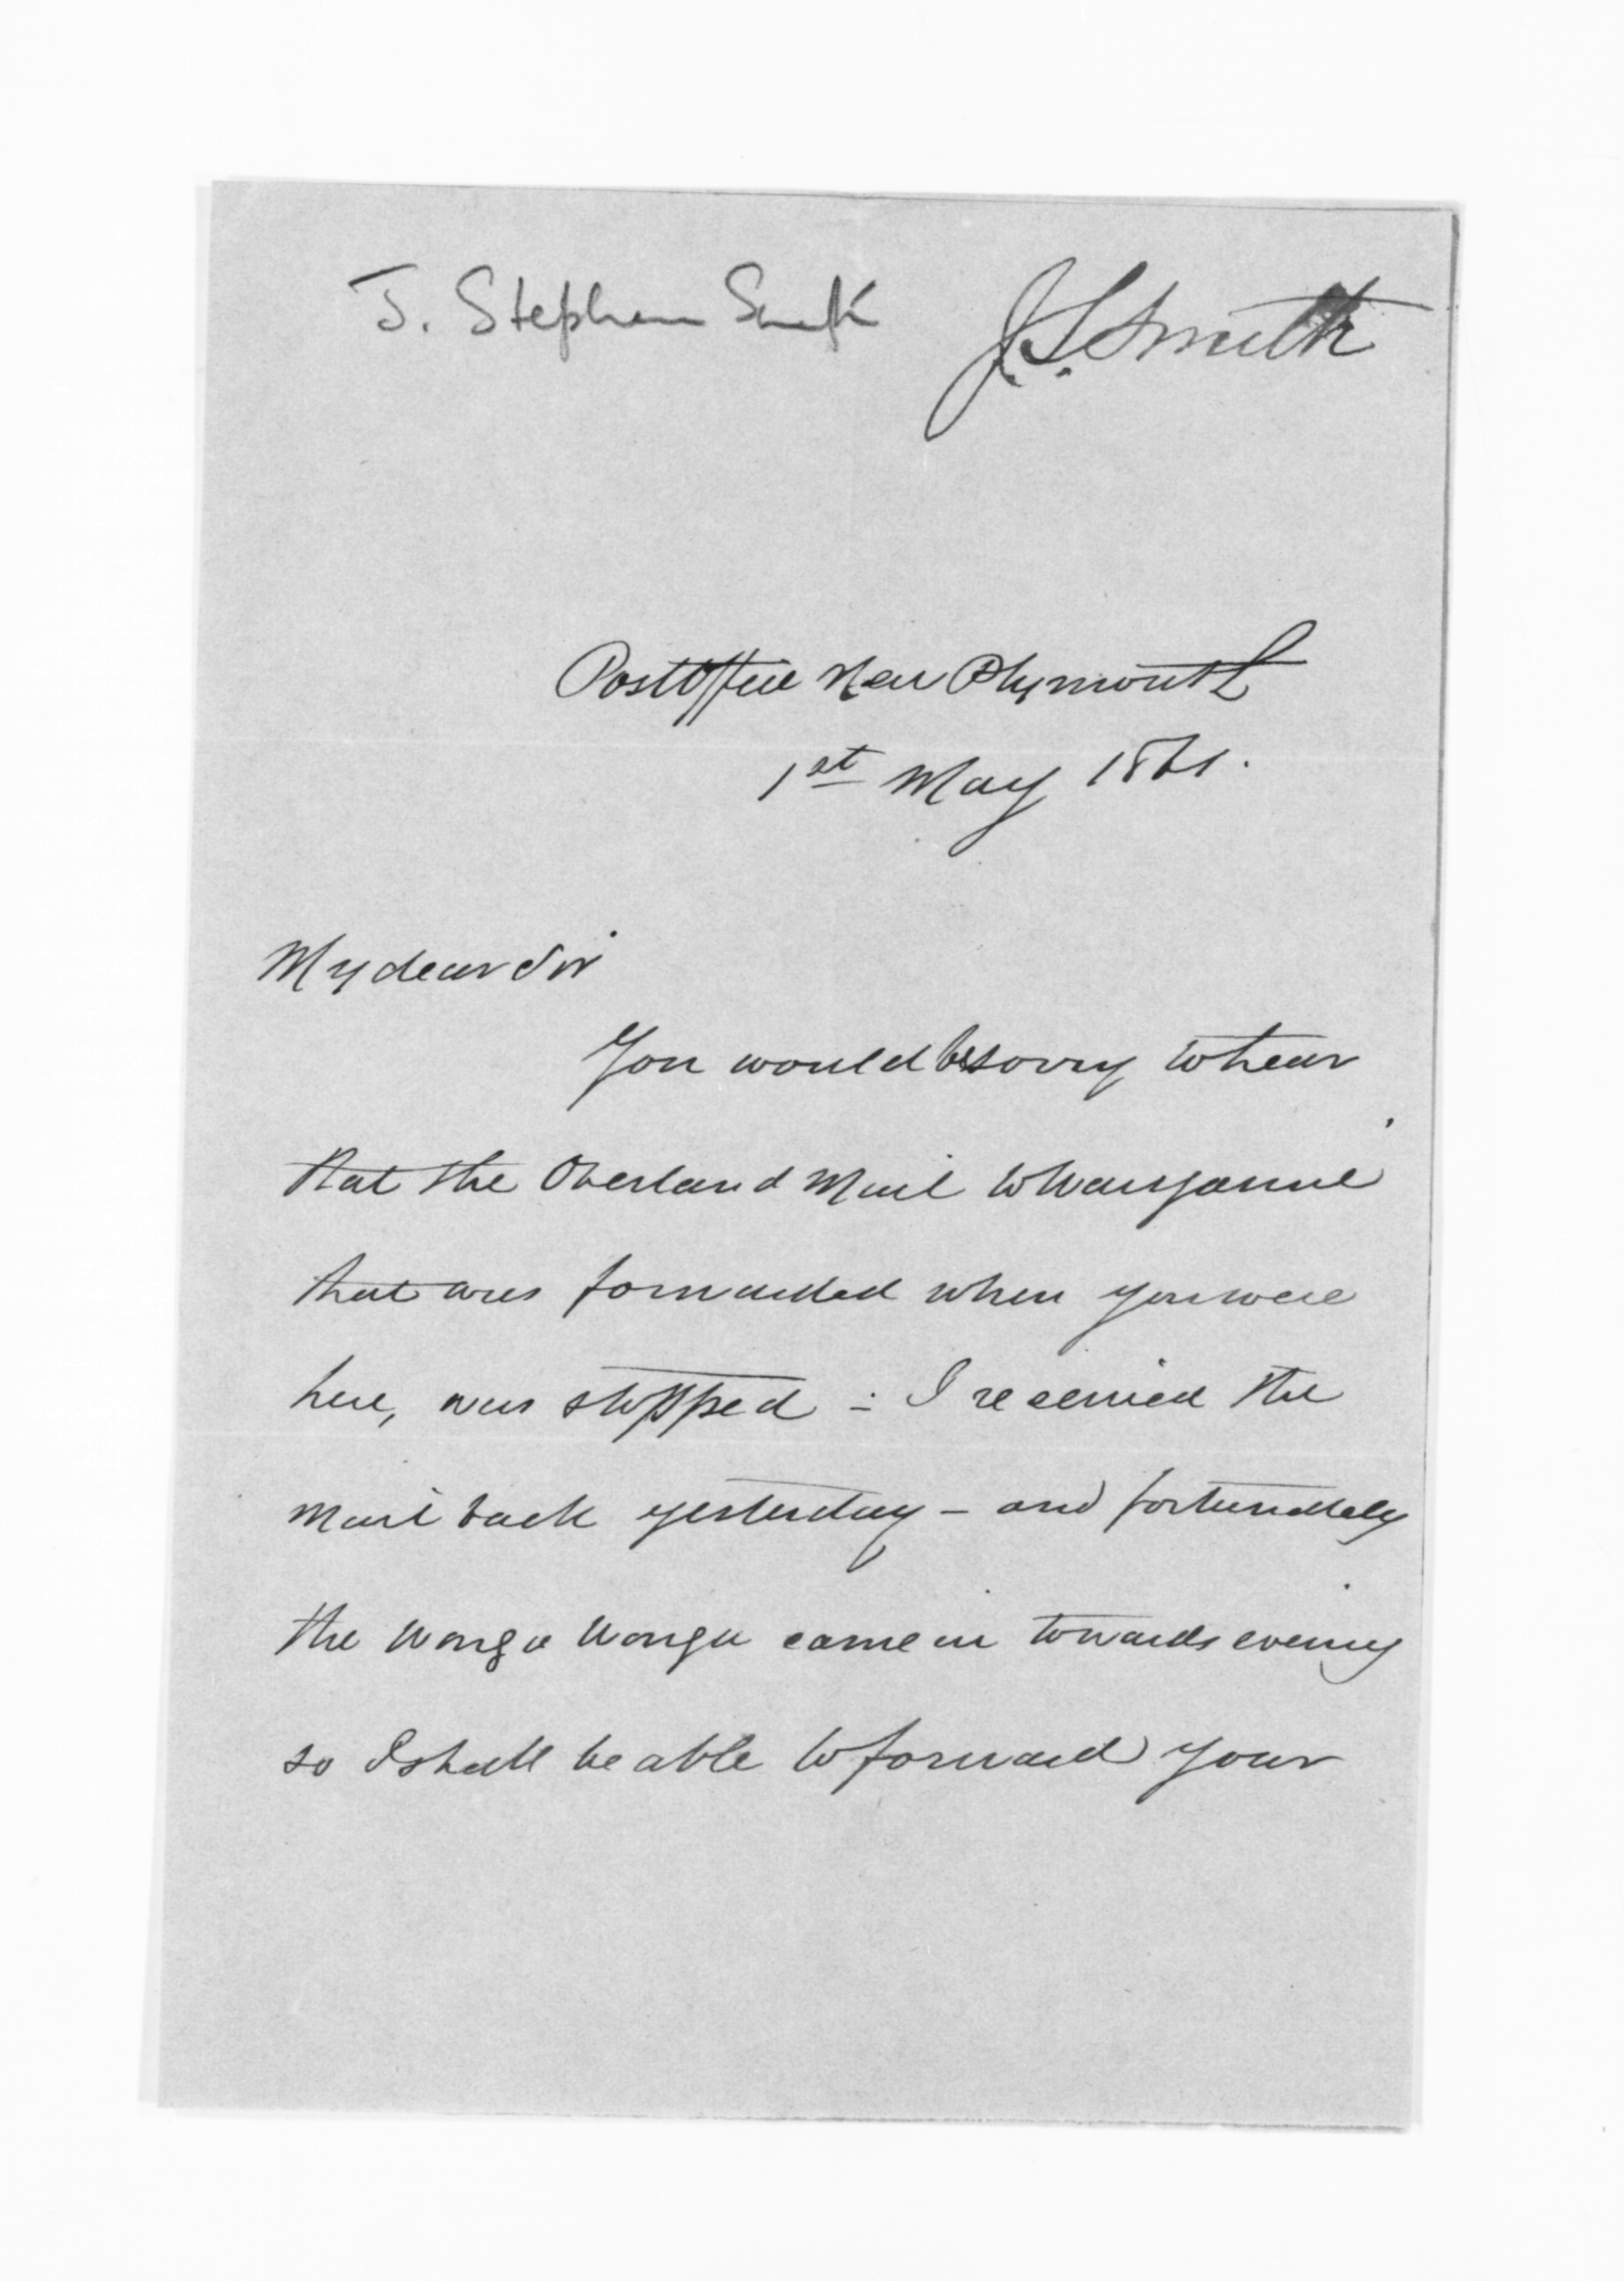 J. Stephen Smith J. S. Smith
Post Office New Plymouth
1st May 1861.
My dear Sir
You would be sorry to hear
that the Overland Mail to Wanganui
that was forwarded when you were
here, was stopped :- I received the
Mail back yesterday - and fortunately
the Wonga Wonga came in towards evening
so I shall be able to forward your